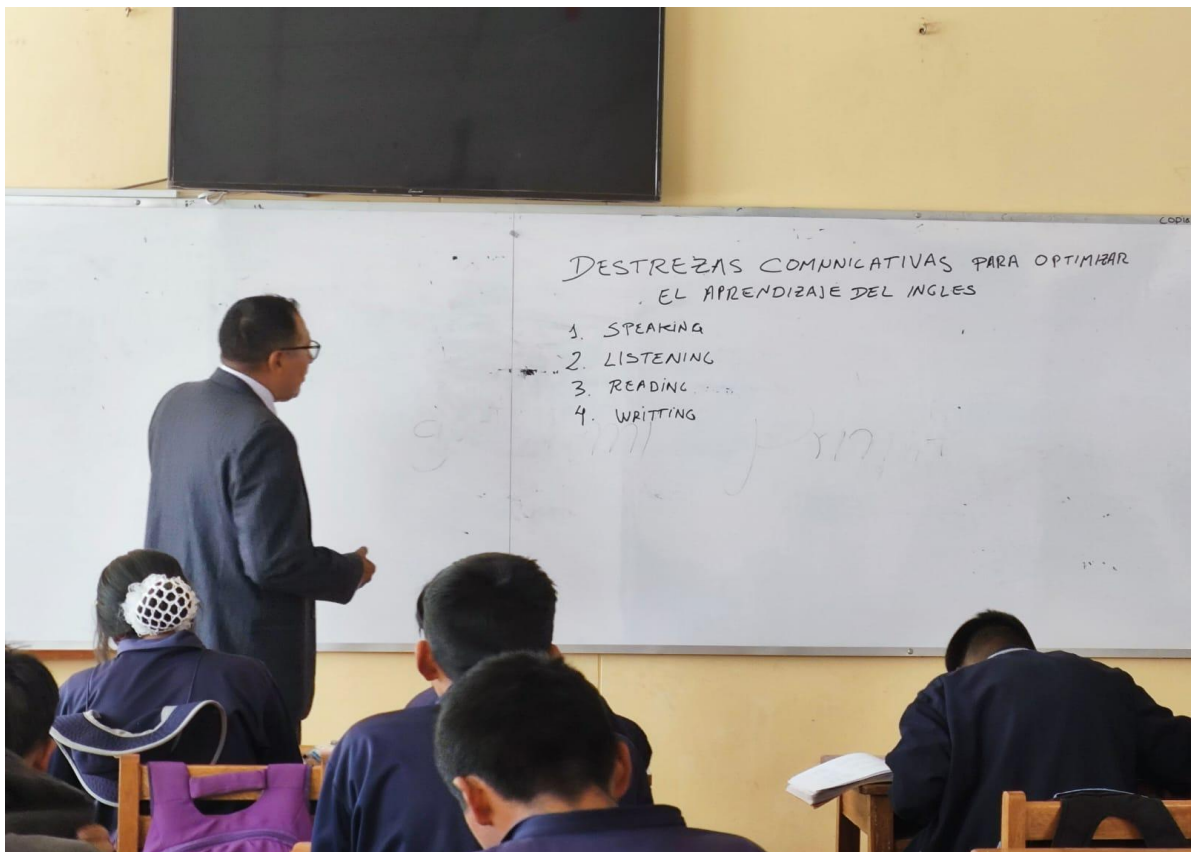 DESTREZAS COMUNICATIVAS PARA OPTIMIZAR
EL APRENDIZAJE DEL INGLES
1. SPEAKING
2. LISTENING
3. READING
4. WRITTING